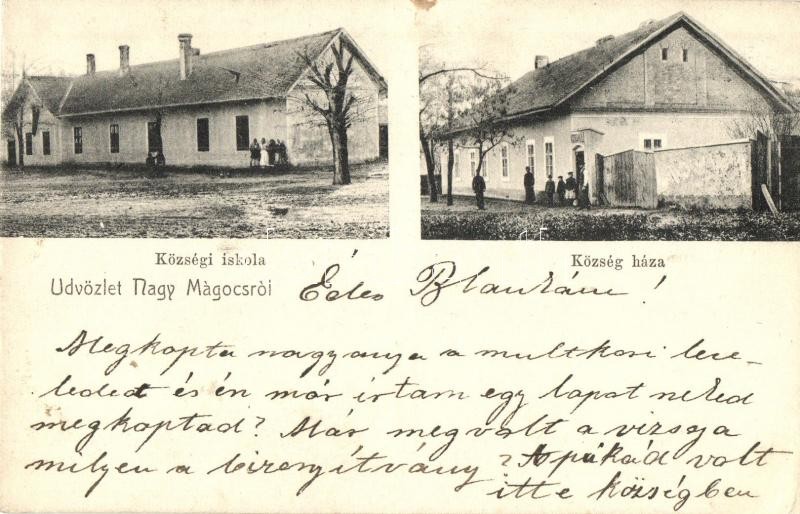 Községi iskola
Község háza
Üdvözlet Nagy Màgocsròl
Édes Blankám!
Megkapta nagyanya a multkori leve-
ledet és én már irtam egy lapot neked
megkaptad? Már megvolt a vizsga
milyen a bizonyítvány? Apukád volt
itt e községben